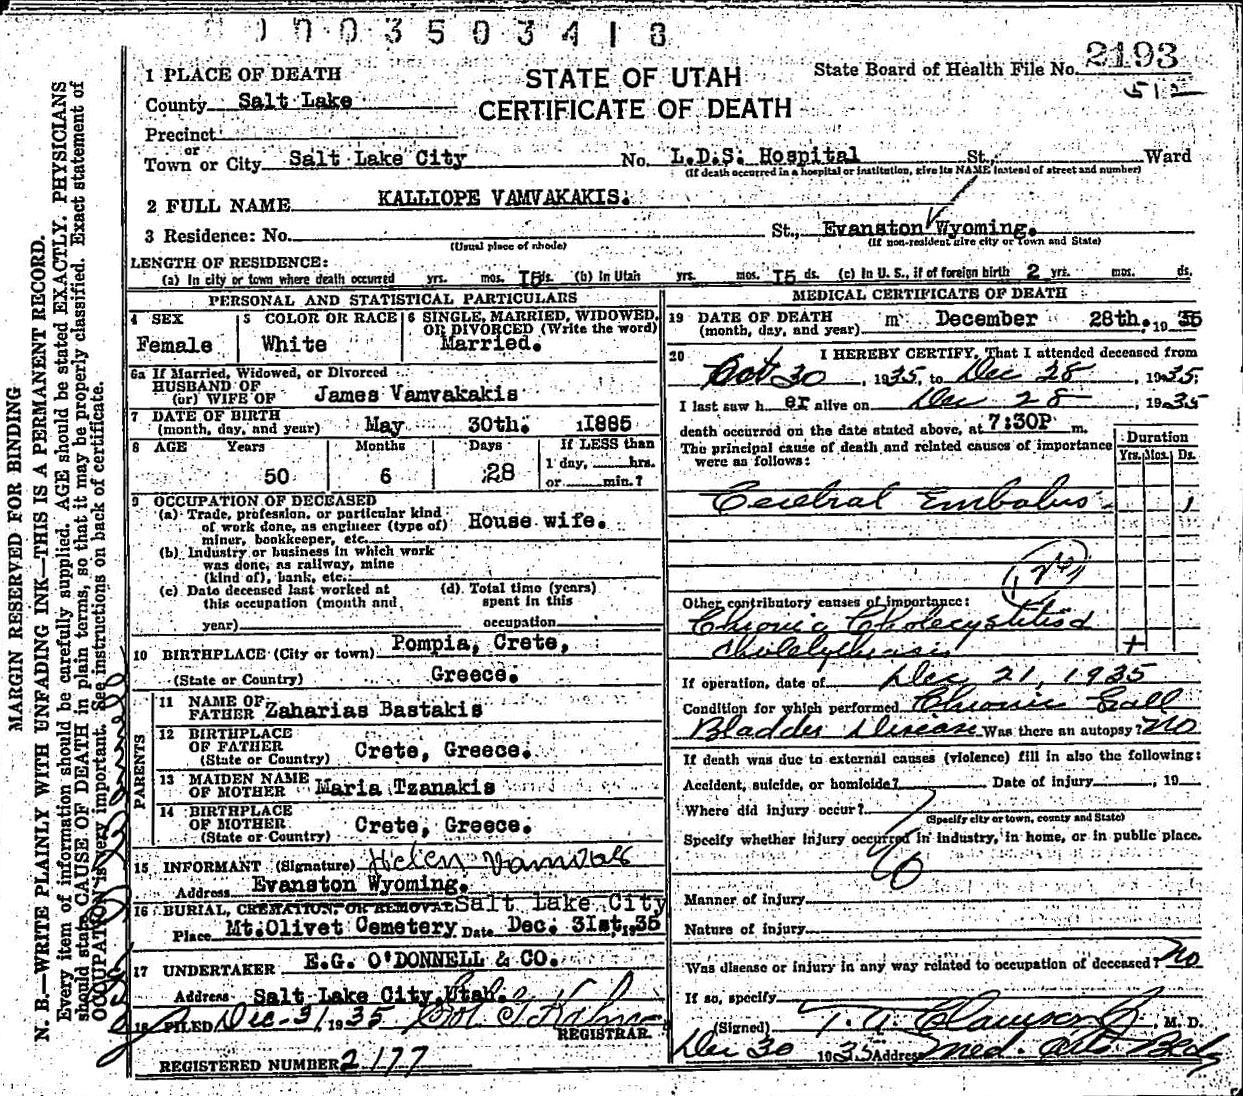 1003503418
1 PLACE OF DEATH
STATE OF UTAH
CERTIFICATE OF DEATH
State Board of Health File No. 2193
County Salt Lake
Precinct
or
Town or City Salt Lake City No. L.D.S. Hospital St., Ward
(If death occurred in a hospital or institution, give its NAME instead of street and number)
2 FULL NAME KALLIOPE VAMVAKAKIS.
3 Residence: No. St., Evanston Wyoming.
(Usual place of abode) (If non-resident give city or Town and State)
LENGTH OF RESIDENCE:
(a) In city or town where death occurred yrs. mos. 15 ds. (b) In Utah yrs. mos. 15 ds. (c) In U. S., if of foreign birth 2 yrs. mos. ds.
PERSONAL AND STATISTICAL PARTICULARS
4 SEX
Female
5 COLOR OR RACE
White
6 SINGLE, MARRIED, WIDOWED, OR DIVORCED (Write the word)
Married.
6a If Married, Widowed, or Divorced
HUSBAND OF
(or) WIFE OF James Vamvakakis
7 DATE OF BIRTH
(month, day, and year) May 30th. 1885
8 AGE Years Months Days If LESS than
50 6 28 1 day, hrs.
or min.?
9 OCCUPATION OF DECEASED
(a) Trade, profession, or particular kind
of work done, as engineer (type of)
miner, bookkeeper, etc. House wife.
(b) Industry or business in which work
was done, as railway, mine
(kind of), bank, etc.
(c) Date deceased last worked at
this occupation (month and
year)
(d) Total time (years)
spent in this
occupation
10 BIRTHPLACE (City or town) Pompia, Crete,
(State or Country) Greece.
PARENTS
11 NAME OF
FATHER Zaharias Bastakis
12 BIRTHPLACE
OF FATHER
(State or Country) Crete, Greece.
13 MAIDEN NAME
OF MOTHER Maria Tzanakis
14 BIRTHPLACE
OF MOTHER
(State or Country) Crete, Greece.
15 INFORMANT (Signature) Helen Vamvak
Address Evanston Wyoming.
16 BURIAL, CREMATION, OR REMOVAL Salt Lake City
Place Mt. Olivet Cemetery Date Dec. 31st, 1935
17 UNDERTAKER E.G. O'DONNELL & CO.
Address Salt Lake City, Utah.
18 FILED Dec-31 1935
REGISTRAR.
REGISTERED NUMBER 2177
MEDICAL CERTIFICATE OF DEATH
19 DATE OF DEATH
(month, day, and year) m December 28th. 1935
20 I HEREBY CERTIFY, That I attended deceased from
Oct 30, 1935, to Dec 28, 1935;
I last saw her alive on Dec 28, 1935
death occurred on the date stated above, at 7:30P m.
The principal cause of death and related causes of importance
were as follows:
Duration
Yrs. Mos. Ds.
Cerebral Embolus 1
Other contributory causes of importance:
Chronic Cholecystitis
Cholelithiasis +
If operation, date of Dec 21, 1935
Condition for which performed Chronic Gall
Bladder Disease Was there an autopsy? No
If death was due to external causes (violence) fill in also the following:
Accident, suicide, or homicide? Date of injury , 19
Where did injury occur?
(Specify city or town, county and State)
Specify whether injury occurred in industry, in home, or in public place.
Manner of injury
Nature of injury
Was disease or injury in any way related to occupation of deceased? No
If so, specify
(Signed) T. A. Clawson Jr, M. D.
Dec 30 1935 Address Med. Arts Bldg
MARGIN RESERVED FOR BINDING
N. B.—WRITE PLAINLY WITH UNFADING INK—THIS IS A PERMANENT RECORD.
Every item of information should be carefully supplied. AGE should be stated EXACTLY. PHYSICIANS
should state CAUSE OF DEATH in plain terms, so that it may be properly classified. Exact statement of
OCCUPATION is very important. See instructions on back of certificate.